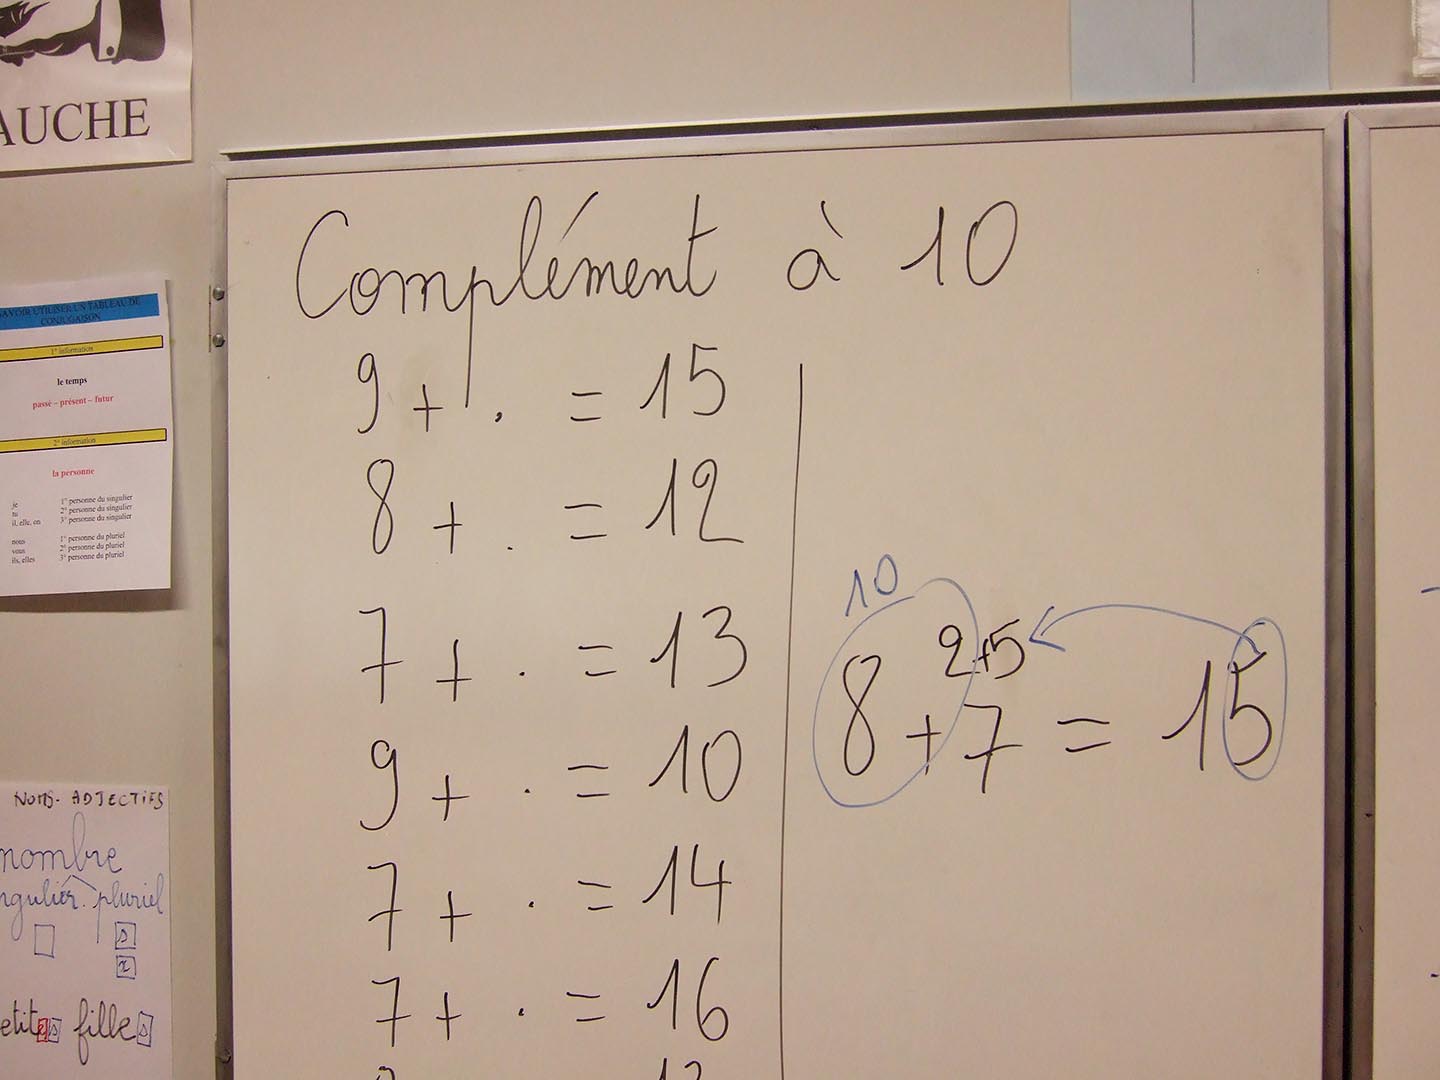 AUCHE
SAVOIR UTILISER UN TABLEAU DE
CONJUGAISON
1° information
le temps
passé – présent – futur
2° information
la personne
je 1° personne du singulier
tu 2° personne du singulier
il, elle, on 3° personne du singulier
nous 1° personne du pluriel
vous 2° personne du pluriel
ils, elles 3° personne du pluriel
NOMS- ADJECTIFS
nombre
ngulier. pluriel
s
x
etites filles
Complément à 10
9 + . = 15
8 + . = 12
7 + . = 13
9 + . = 10
7 + . = 14
7 + . = 16
10
2+5
8 + 7 = 15